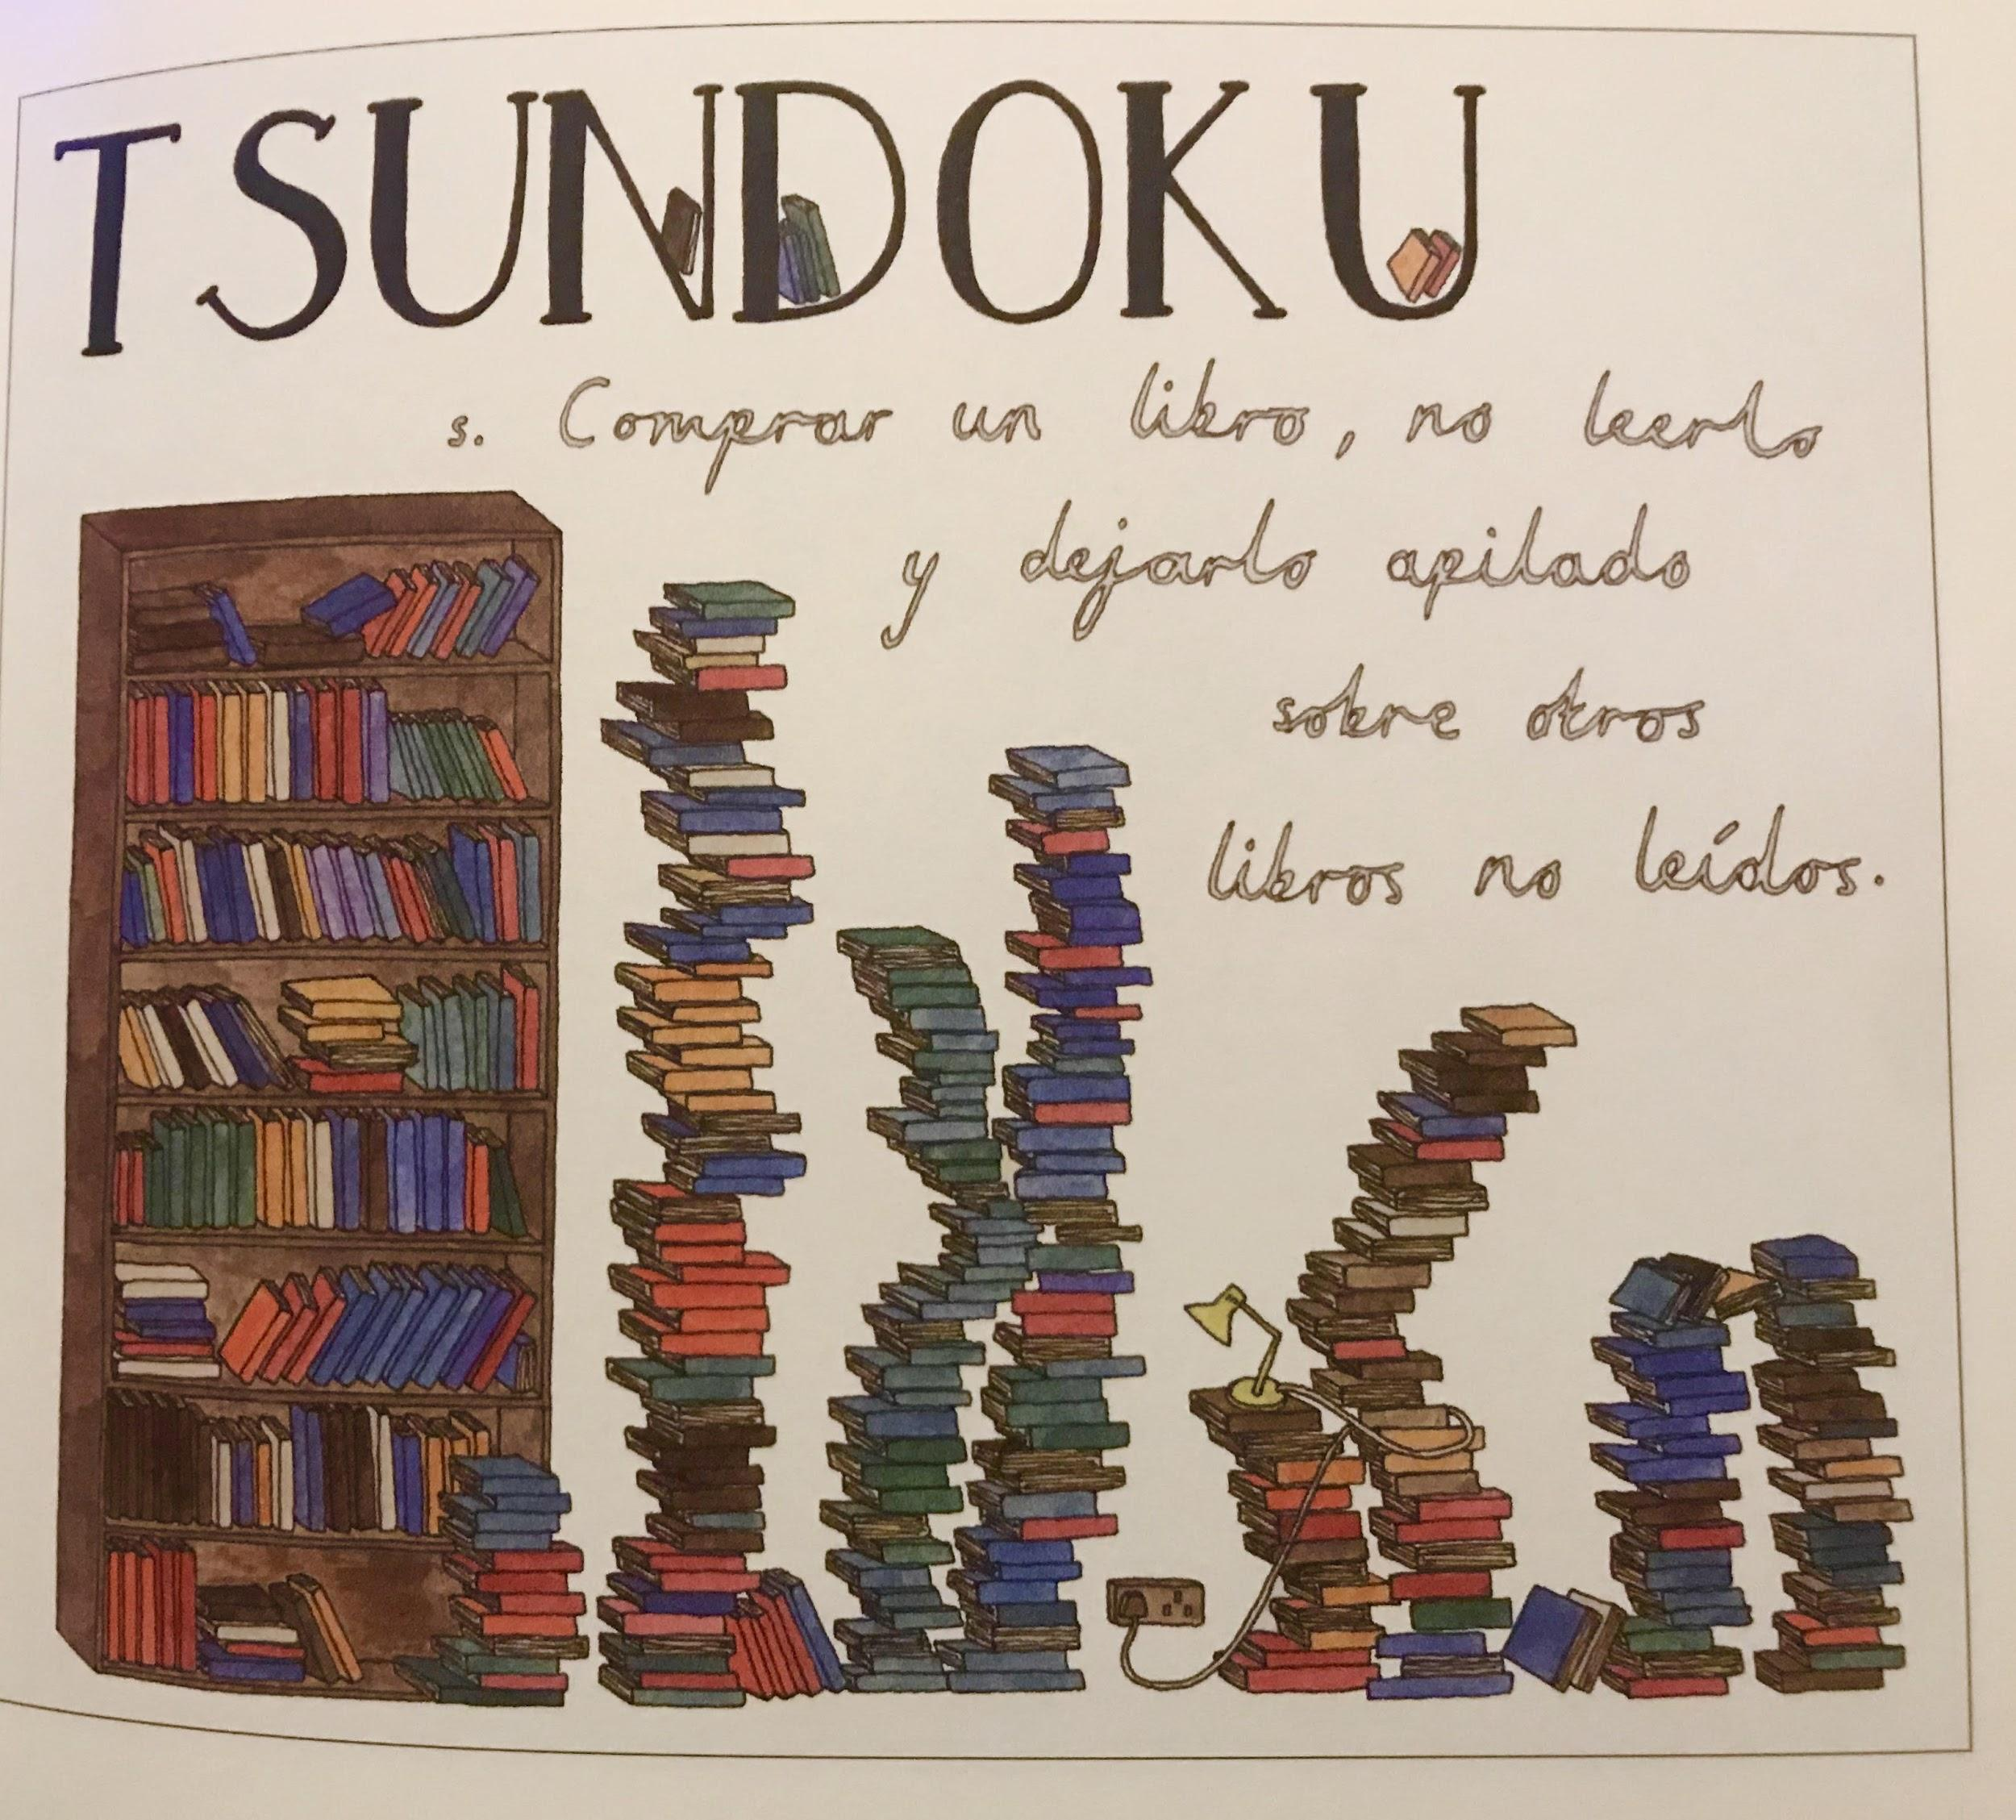 TSUNDOKU
s. Comprar un libro, no leerlo
y dejarlo apilado
sobre otros
libros no leídos.